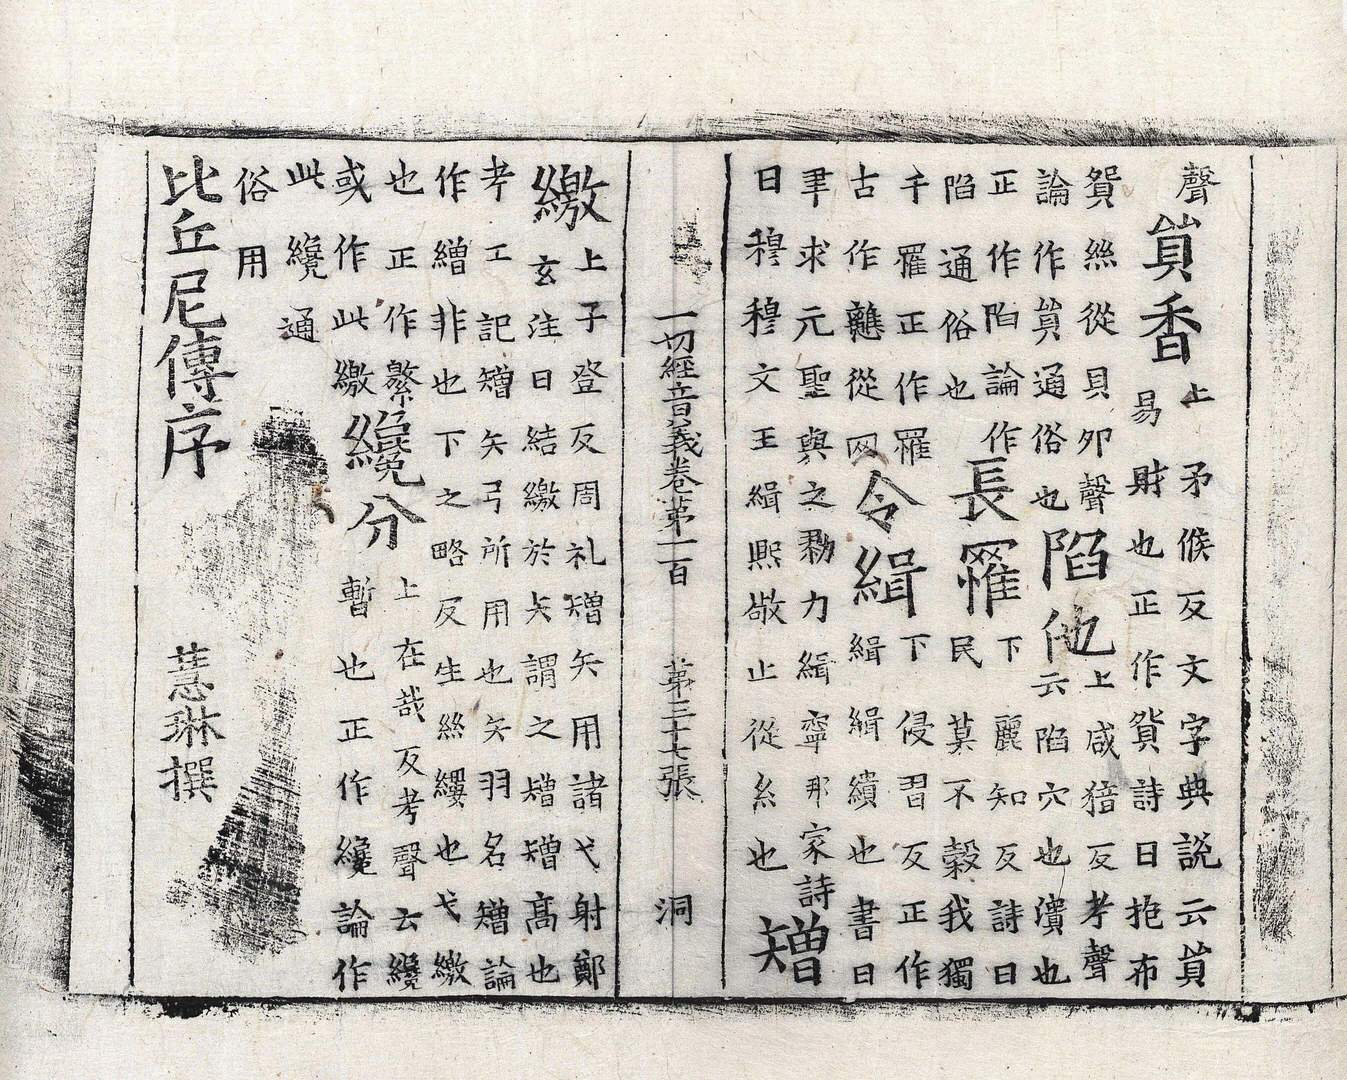 聲
貿香
上矛候反文字典說云貿
易財也正作貿詩曰抱布
貿絲從貝夘聲
論作貿通俗也
陷他
上咸猪反考聲
云陷穴也瀆也
正作陷論作
陷通俗也
長罹
下麗知反詩曰
民莫不穀我獨
于罹正作罹
古作䍦從网
令緝
下侵習反正作
緝緝績也書曰
聿求元聖與之勠力緝寧那家詩
曰穆穆文王緝熙敬止從糸也
矰
一切經音義卷第一百 第三十七張 洞
繳
上子登反周礼矰矢用諸弋射鄭
玄注曰結繳於矢謂之矰矰高也
考工記矰矢弓所用也矢羽名矰論
作繒非也下之略反生絲縷也弋繳
也正作繁
或作此繳
纔分
上在哉反考聲云纔
暫也正作纔論作
此纔通
俗用
比丘尼傳序 慧琳撰